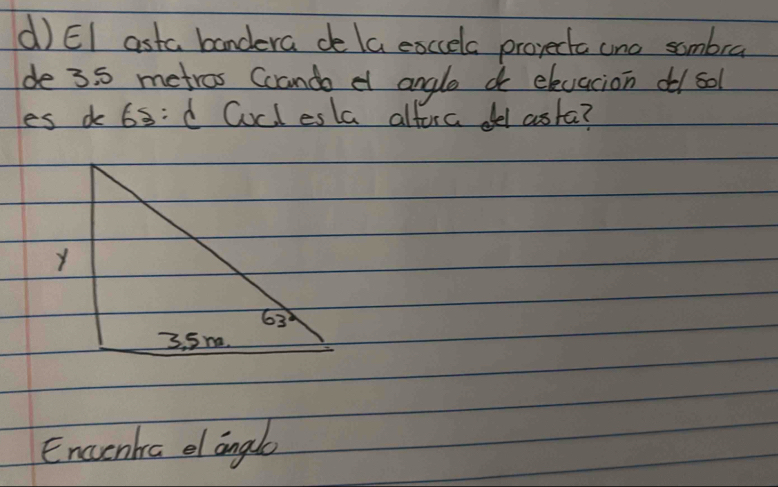 d) El asta bandera de la escuela proyecta una sombra
de 3.5 metros Cuando el anglo de elevación del sol
es de 63: ¿ Cual es la altura del asta?
y
63°
3.5 m.
Encuentra el ángulo